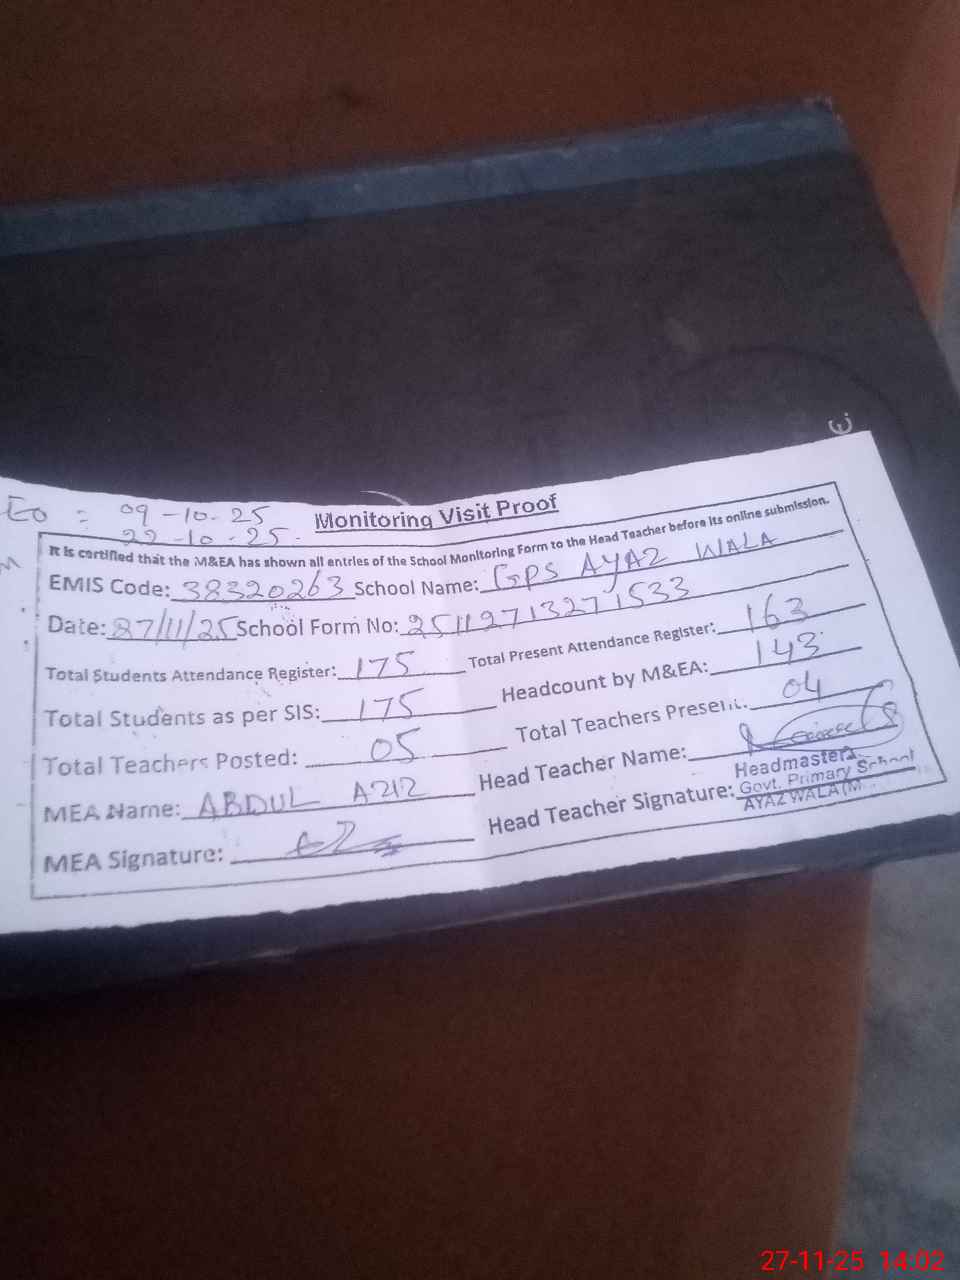 Eo = 09-10-25
22-10-25.
Monitoring Visit Proof
It is certified that the M&EA has shown all entries of the School Monitoring Form to the Head Teacher before its online submission.
EMIS Code: 38320263 School Name: GPS AYAZ WALA
Date: 27/11/25 School Form No: 25112713271533
Total Students Attendance Register: 175 Total Present Attendance Register: 163
Total Students as per SIS: 175 Headcount by M&EA: 143
Total Teachers Posted: 05 Total Teachers Present: 04
MEA Name: ABDUL AZIZ Head Teacher Name:
MEA Signature: Head Teacher Signature:
Headmaster
Govt. Primary School
AYAZ WALA (M
27-11-25 14:02